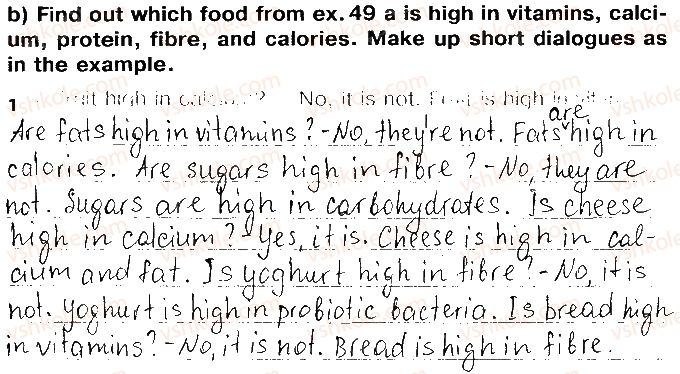 b) Find out which food from ex. 49 a is high in vitamins, calci-
um, protein, fibre, and calories. Make up short dialogues as
in the example.
1 high in No, it is not. is high in
Are fats high in vitamins? - No, they're not. Fats are high in
calories. Are sugars high in fibre? - No, they are
not. Sugars are high in carbohydrates. Is cheese
high in calcium? - Yes, it is. Cheese is high in cal-
cium and fat. Is yoghurt high in fibre? - No, it is
not. Yoghurt is high in probiotic bacteria. Is bread high
in vitamins? - No, it is not. Bread is high in fibre.